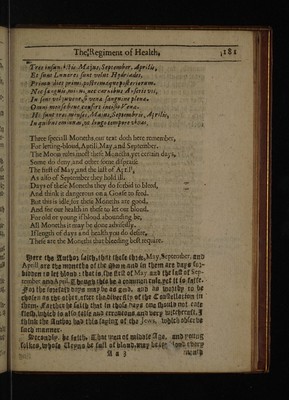 The Regiment of Health, 181
Tres insunt istis Majus, September, Aprilis,
Et sunt Lunares sunt velut Hydriades,
Prima dies primi, postremaque posteriorum,
Nec sanguis minui, nec carnibus Anseris uti,
In sene vel juvene, si venæ sanguine plenæ.
Omni mense bene confert incisio Venæ.
Hi sunt tres menses, Majus, September, Aprilis,
In quibus eminuas, ut longo tempore vivas.
Three speciall Moneths our text doth here remember,
For letting-blood, Aprill, May, and September.
The Moon rules most these Moneths, yet certain days,
Some do deny, and other some dispraise
The first of May, and the last of April,
As also of September they hold ill.
Days of these Moneths they do forbid to bleed,
And think it dangerous on a Goose to feed.
But this is idle, for these Moneths are good,
And for our health in these to let out blood.
For old or young if blood abounding be,
All Moneths it may be done advisedly.
If length of days and health you do desire,
These are the Moneths that bleeding best require.
Here the Author saith, that these three, May, September, and
April, are the moneths of the Moon and in them are days for-
bidden to let blood: that is, the first of May and the last of Sep-
tember and April. Though this be a common rule, yet it is false.
For the foresaid days may be as good, and as worthy to be
chosen as the other, after the diversity of the Constellation in
them. Farther he saith that in those days one should not eate
flesh, which is also false and erroneous and very witchcraft. I
think the Author had this saying of the Jews, which observe
such manner.
Secondly, he saith, That men of middle Age, and young
folkes, whose Veyns be full of blood, may be let blood every